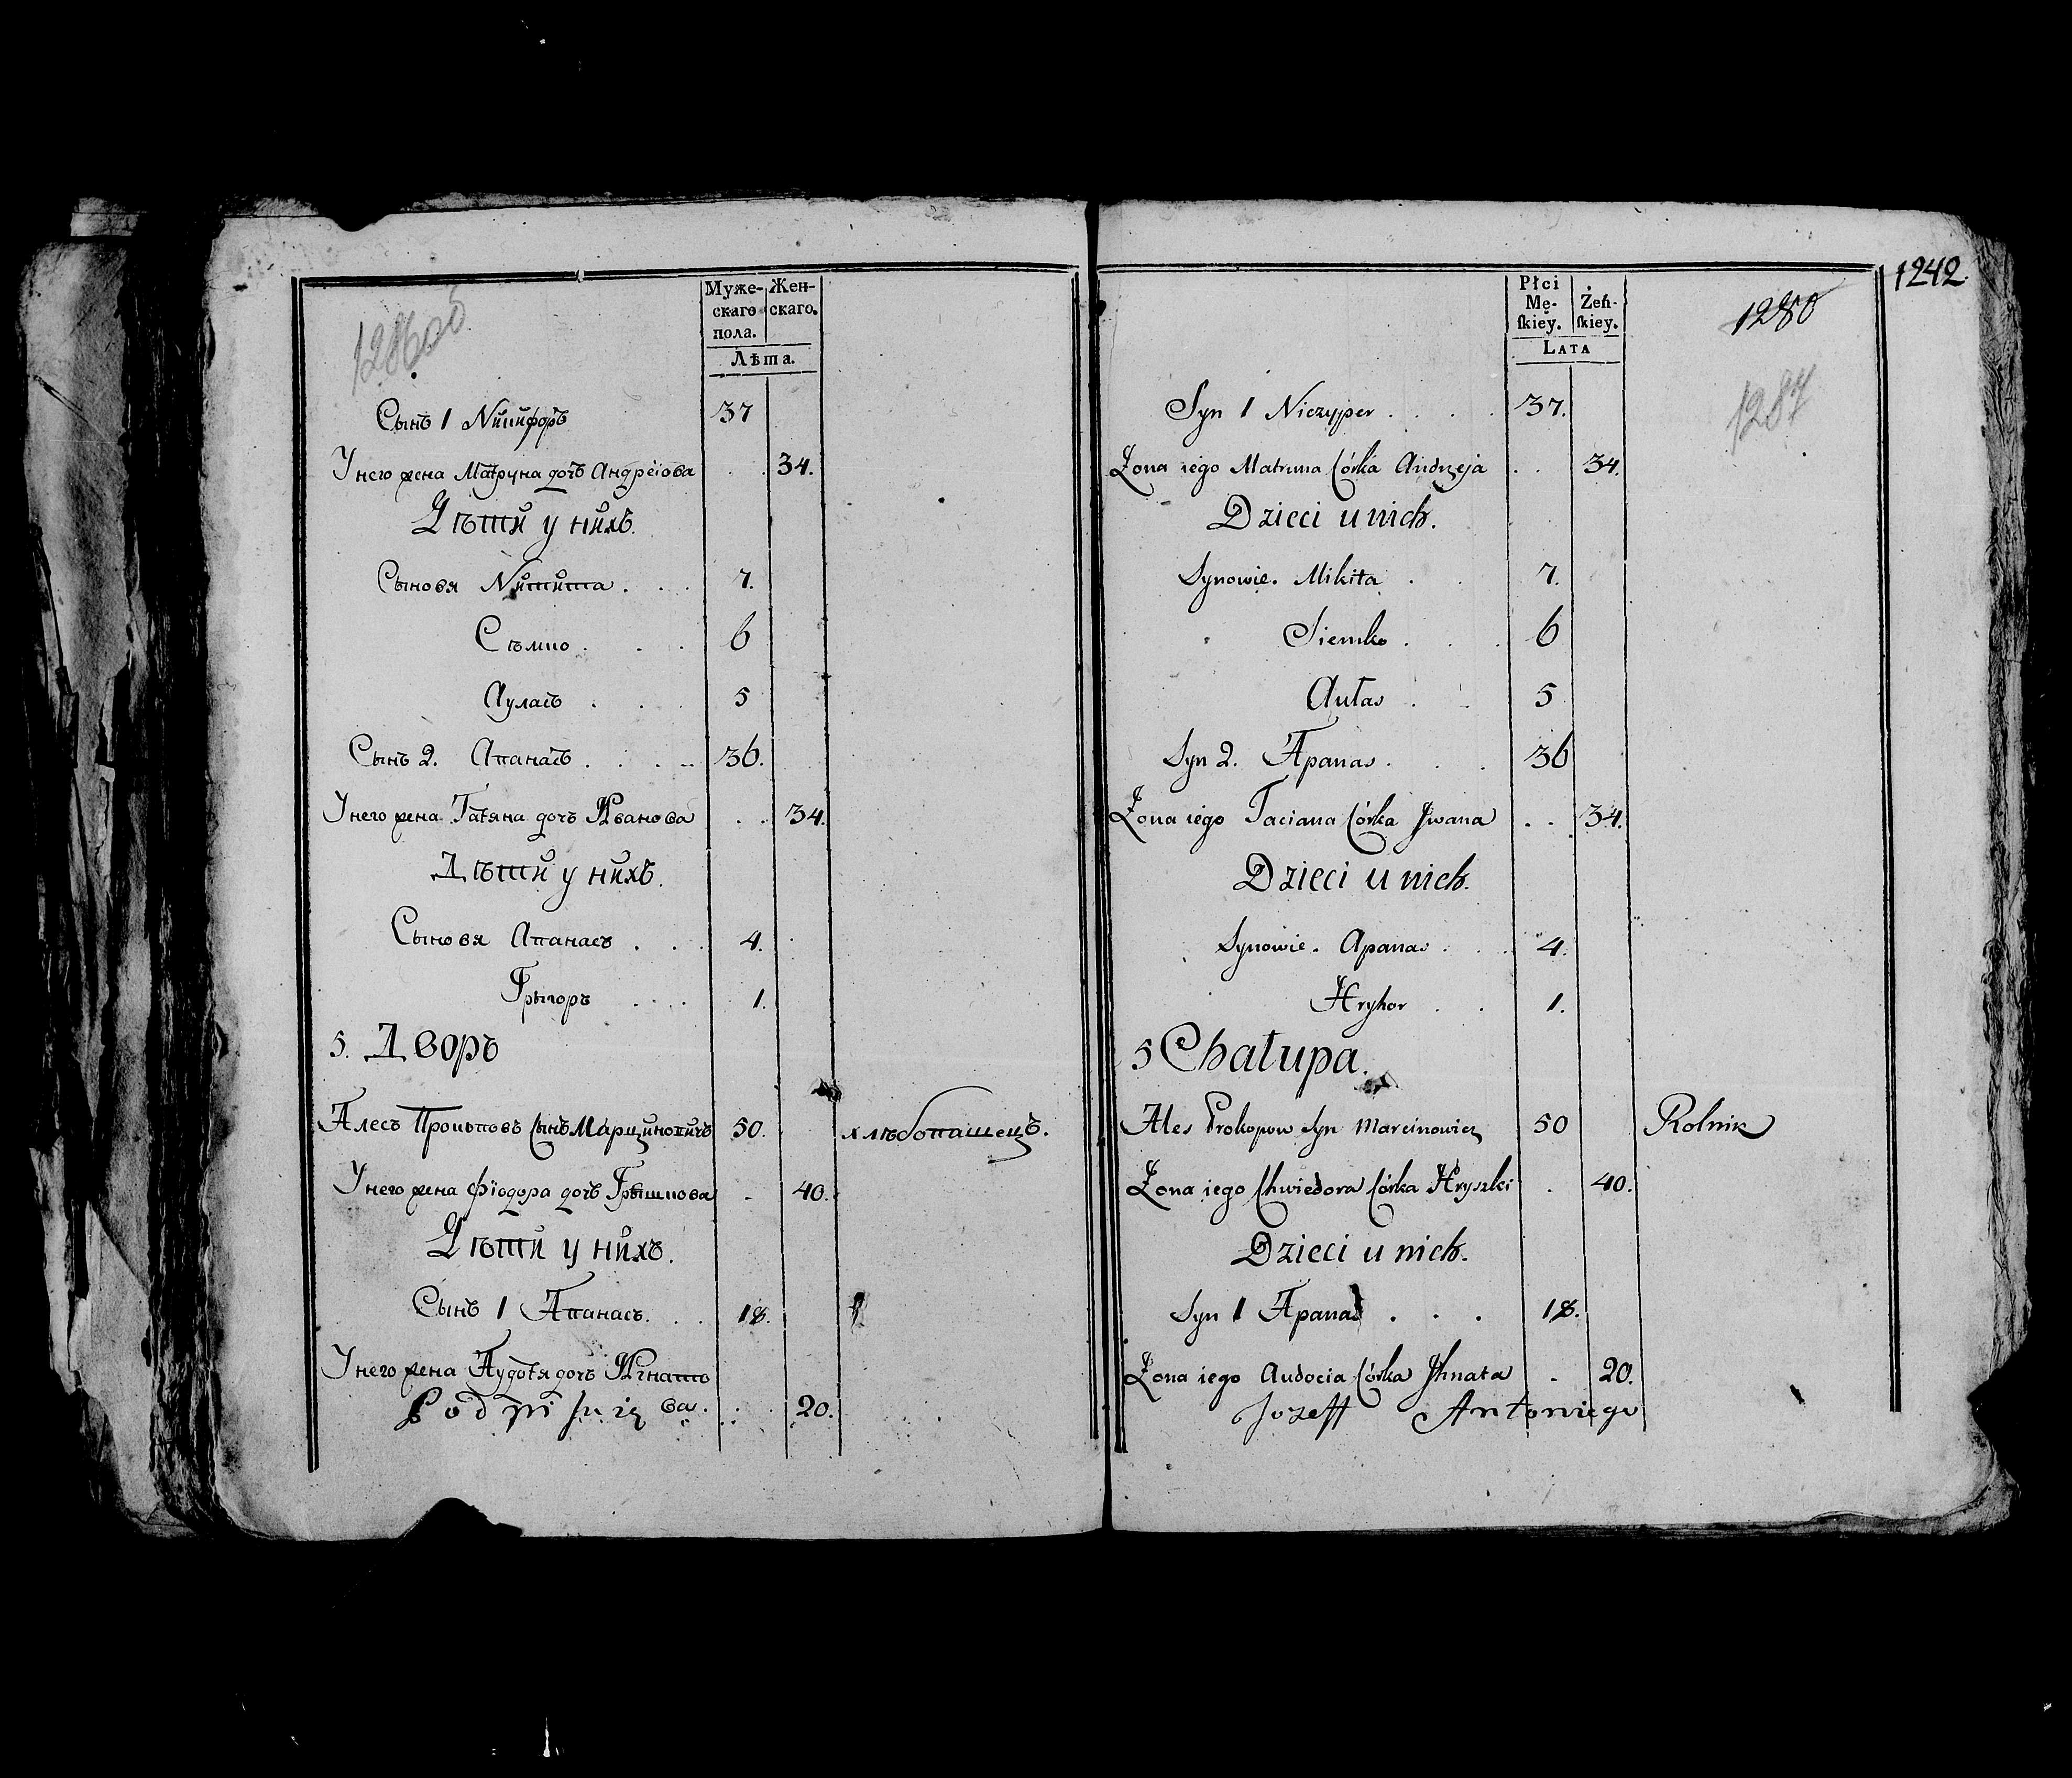 Муже-
скаго
пола.
Жен-
скаго.
Лѣта.
Сынъ 1 Ничифоръ 37
У него жена Матруна дочъ Андреіова . . 34.
Дѣти у нихъ.
Сыновя Никита . . . 7.
Сѣмко . . . 6
Ауласъ . . . 5
Сынъ 2. Апанасъ . . . . 36.
У него жена Татяна дочъ Иванова . . 34.
Дѣти у нихъ.
Сыновя Апанасъ . . . 4.
Грыгоръ . . . . 1.
5. Дворъ
Алесъ Прокоповъ Сынъ Марциновичъ 50. хлѣбопашецъ.
У него жена Фіодора дочъ Грышкова . 40.
Дѣти у нихъ.
Сынъ 1 Апанасъ. . . 18.
У него жена Аудотя дочъ Игнато
ва . . . 20.
Podpisuię
1242.
1280
1287
Płci
Mę-
ſkiey.
Żeń-
ſkiey.
LATA
Syn 1 Niczyper . . . . 37.
Żona iego Matruna Córka Andrzeja . . 34.
Dzieci u nich.
Synowie. Mikita . . 7.
Siemko . . . 6
Aułas . . 5
Syn 2. Apanas . . . 36
Żona iego Taciana Córka Jwana . . 34.
Dzieci u nich.
Synowie. Apanas . . . 4.
Hryhor . . 1.
5 Chałupa.
Ales Prokopow Syn Marcinowicz 50 Rolnik
Żona iego Chwiedora Córka Hryszki . 40.
Dzieci u nich.
Syn 1 Apanas . . . 18.
Żona iego Audocia Córka Jhnata . 20.
Jozeff Antoniego